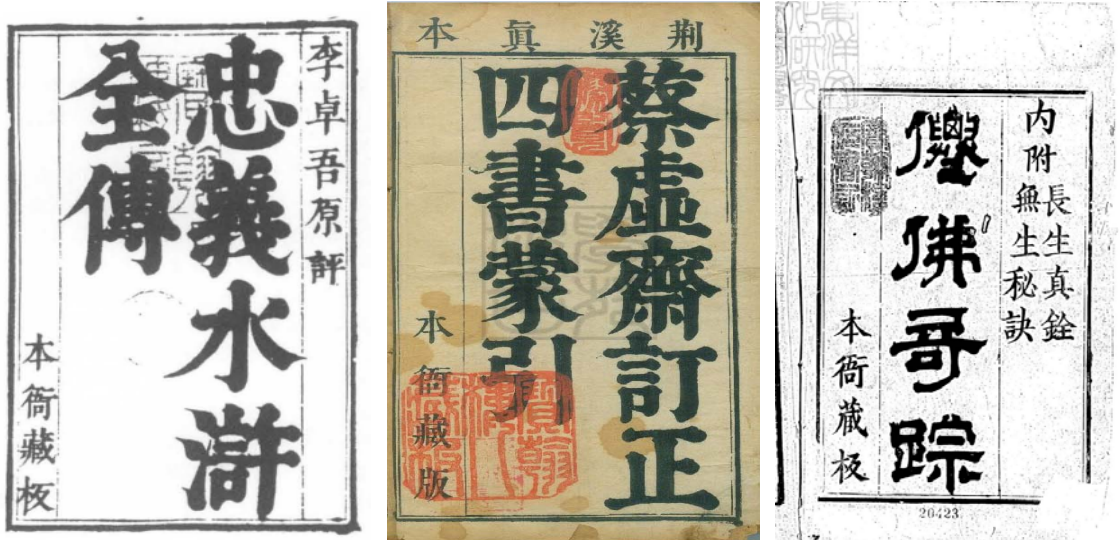 李卓吾原評
忠義水滸
全傳
本衙藏板
荆溪眞本
蔡虛齋訂正
四書蒙引
本衙藏版
内附
長生真銓
無生秘訣
僊佛奇踪
本衙藏板
20423